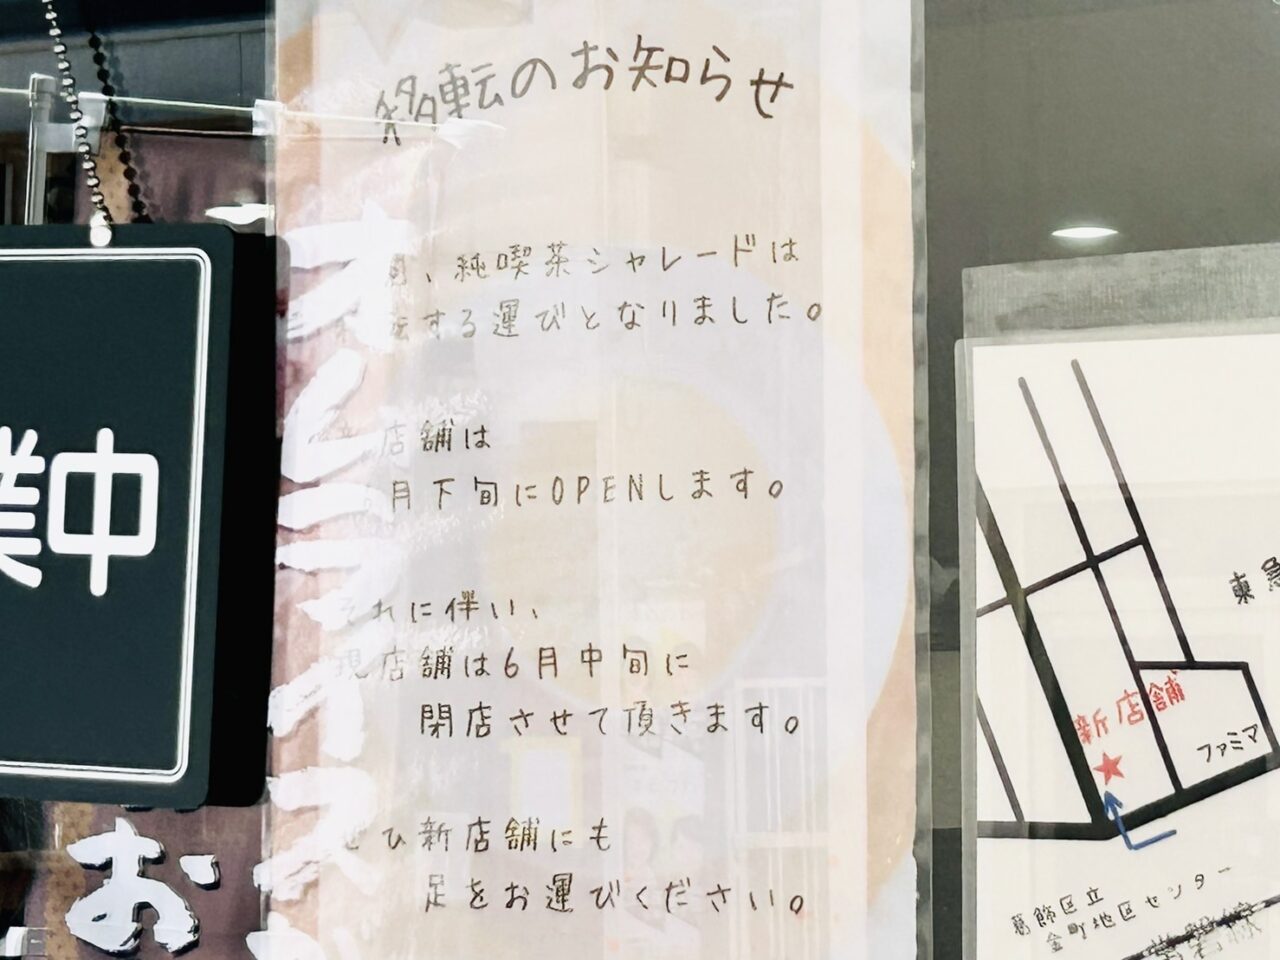 移転のお知らせ
、純喫茶シャレードは
転する運びとなりました。
店舗は
月下旬にOPENします。
それに伴い、
現店舗は6月中旬に
閉店させて頂きます。
ぜひ新店舗にも
足をお運びください。
業中
オムライス
お
東急
新店舗
ファミマ
葛飾区立
金町地区センター
常磐線